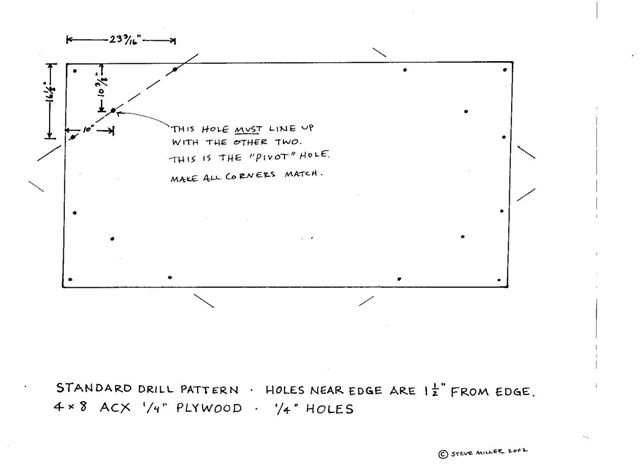 23 3/16"
16 1/8"
10 3/8"
10"
THIS HOLE MUST LINE UP
WITH THE OTHER TWO.
THIS IS THE "PIVOT" HOLE.
MAKE ALL CORNERS MATCH.
STANDARD DRILL PATTERN · HOLES NEAR EDGE ARE 1 1/2" FROM EDGE.
4 x 8 ACX 1/4" PLYWOOD · 1/4" HOLES
© STEVE MILLER 2002